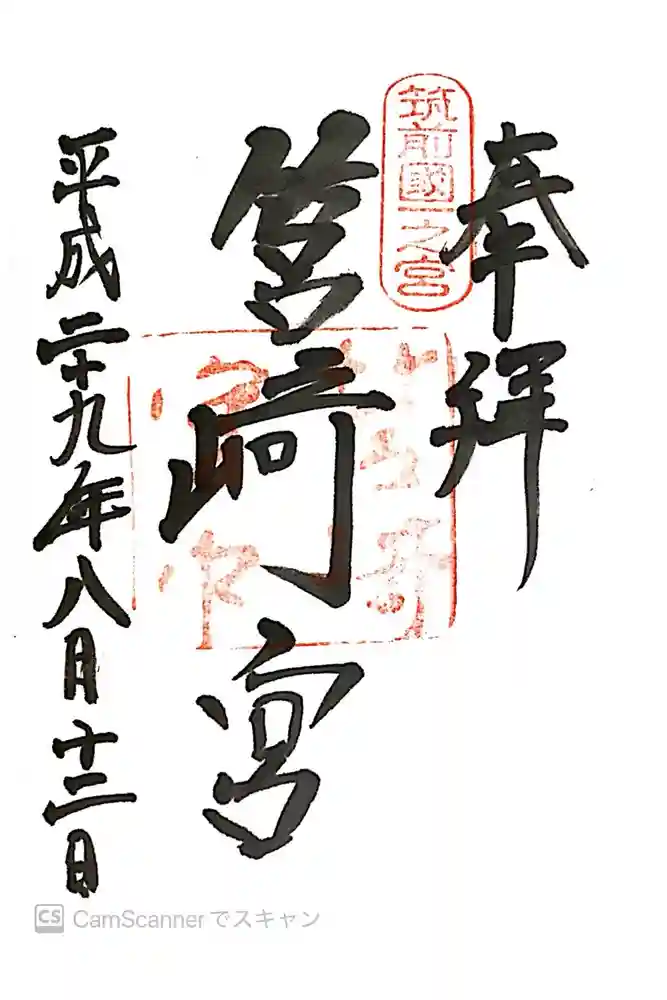 奉拜
筑前國一之宮
筥崎宮
平成二十九年八月十二日
CS CamScannerでスキャン